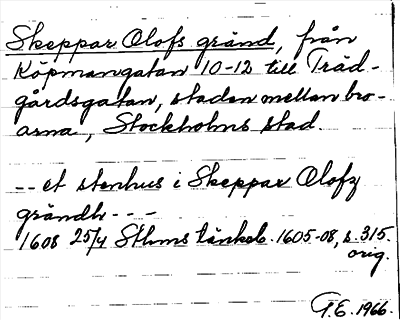 Skeppar Olofs gränd, från
Köpmangatan 10-12 till Träd-
gårdsgatan, staden mellan bro-
arna, Stockholms stad.
-- et stenhus i Skeppar Olofz
grändh - - -
1608 25/4 Sthms tänkeb. 1605-08, s. 315.
orig.
G.E. 1966.